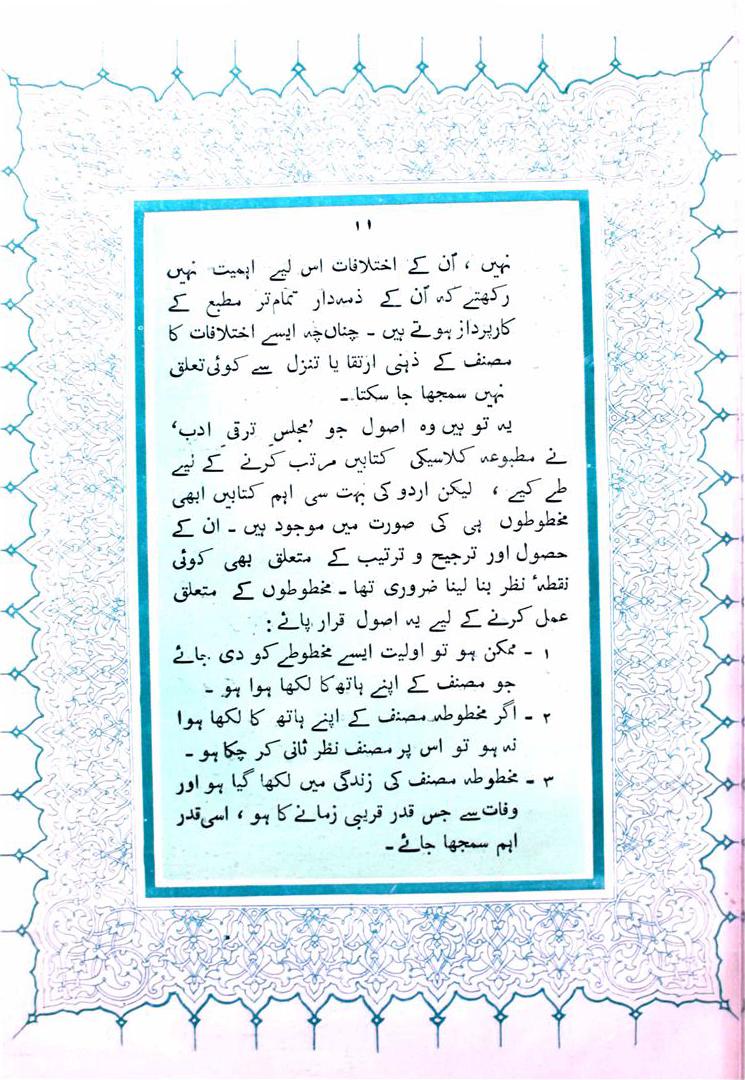 ۱۱
نہیں ، اُن کے اختلافات اس لیے اہمیت نہیں
رکھتے کہ اُن کے ذمہ‌دار تمام‌تر مطبع کے
کارپرداز ہوتے ہیں ۔ چناں‌چہ ایسے اختلافات کا
مصنف کے ذہنی ارتقا یا تنزل سے کوئی تعلق
نہیں سمجھا جا سکتا ۔
یہ تو ہیں وہ اصول جو ’مجلسِ ترقیِ ادب‘
نے مطبوعہ کلاسیکی کتابیں مرتب کرنے کے لیے
طے کیے ، لیکن اردو کی بہت سی اہم کتابیں ابھی
مخطوطوں ہی کی صورت میں موجود ہیں ۔ ان کے
حصول اور ترجیح و ترتیب کے متعلق بھی کوئی
نقطہٴ نظر بنا لینا ضروری تھا ۔ مخطوطوں کے متعلق
عمل کرنے کے لیے یہ اصول قرار پائے :
۱ ۔ ممکن ہو تو اولیت ایسے مخطوطے کو دی جائے
جو مصنف کے اپنے ہاتھ کا لکھا ہوا ہو ۔
۲ ۔ اگر مخطوطہ مصنف کے اپنے ہاتھ کا لکھا ہوا
نہ ہو تو اس پر مصنف نظر ثانی کر چکا ہو ۔
۳ ۔ مخطوطہ مصنف کی زندگی میں لکھا گیا ہو اور
وفات سے جس قدر قریبی زمانے کا ہو ، اسی قدر
اہم سمجھا جائے ۔